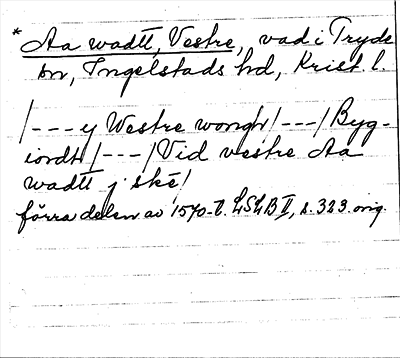 * Aa wadtt, Vestre, vad i Tryde
sn, Ingelstads hd, Krist. l.
/---y Westre wongh/---/Byg-
iordh/---/Vid vestre Aa
wadtt j ské/
förra delen av 1570-t. LSLB II, s. 323 orig.